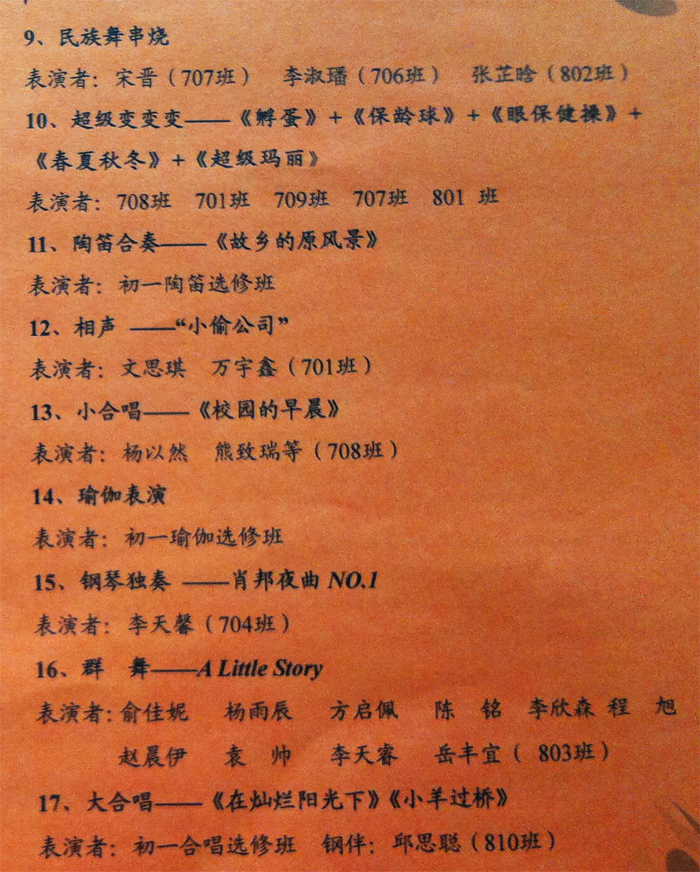 9、民族舞串烧
表演者：宋晋（707班） 李淑璠（706班） 张芷晗（802班）
10、超级变变变——《孵蛋》+《保龄球》+《眼保健操》+
《春夏秋冬》+《超级玛丽》
表演者：708班 701班 709班 707班 801 班
11、陶笛合奏——《故乡的原风景》
表演者：初一陶笛选修班
12、相声 ——“小偷公司”
表演者：文思琪 万宇鑫（701班）
13、小合唱——《校园的早晨》
表演者：杨以然 熊致瑞等（708班）
14、瑜伽表演
表演者：初一瑜伽选修班
15、钢琴独奏 ——肖邦夜曲 NO.1
表演者：李天馨（704班）
16、群 舞——A Little Story
表演者：俞佳妮 杨雨辰 方启佩 陈 铭 李欣森 程 旭
赵晨伊 袁 帅 李天睿 岳丰宜（ 803班）
17、大合唱——《在灿烂阳光下》《小羊过桥》
表演者：初一合唱选修班 钢伴：邱思聪（810班）